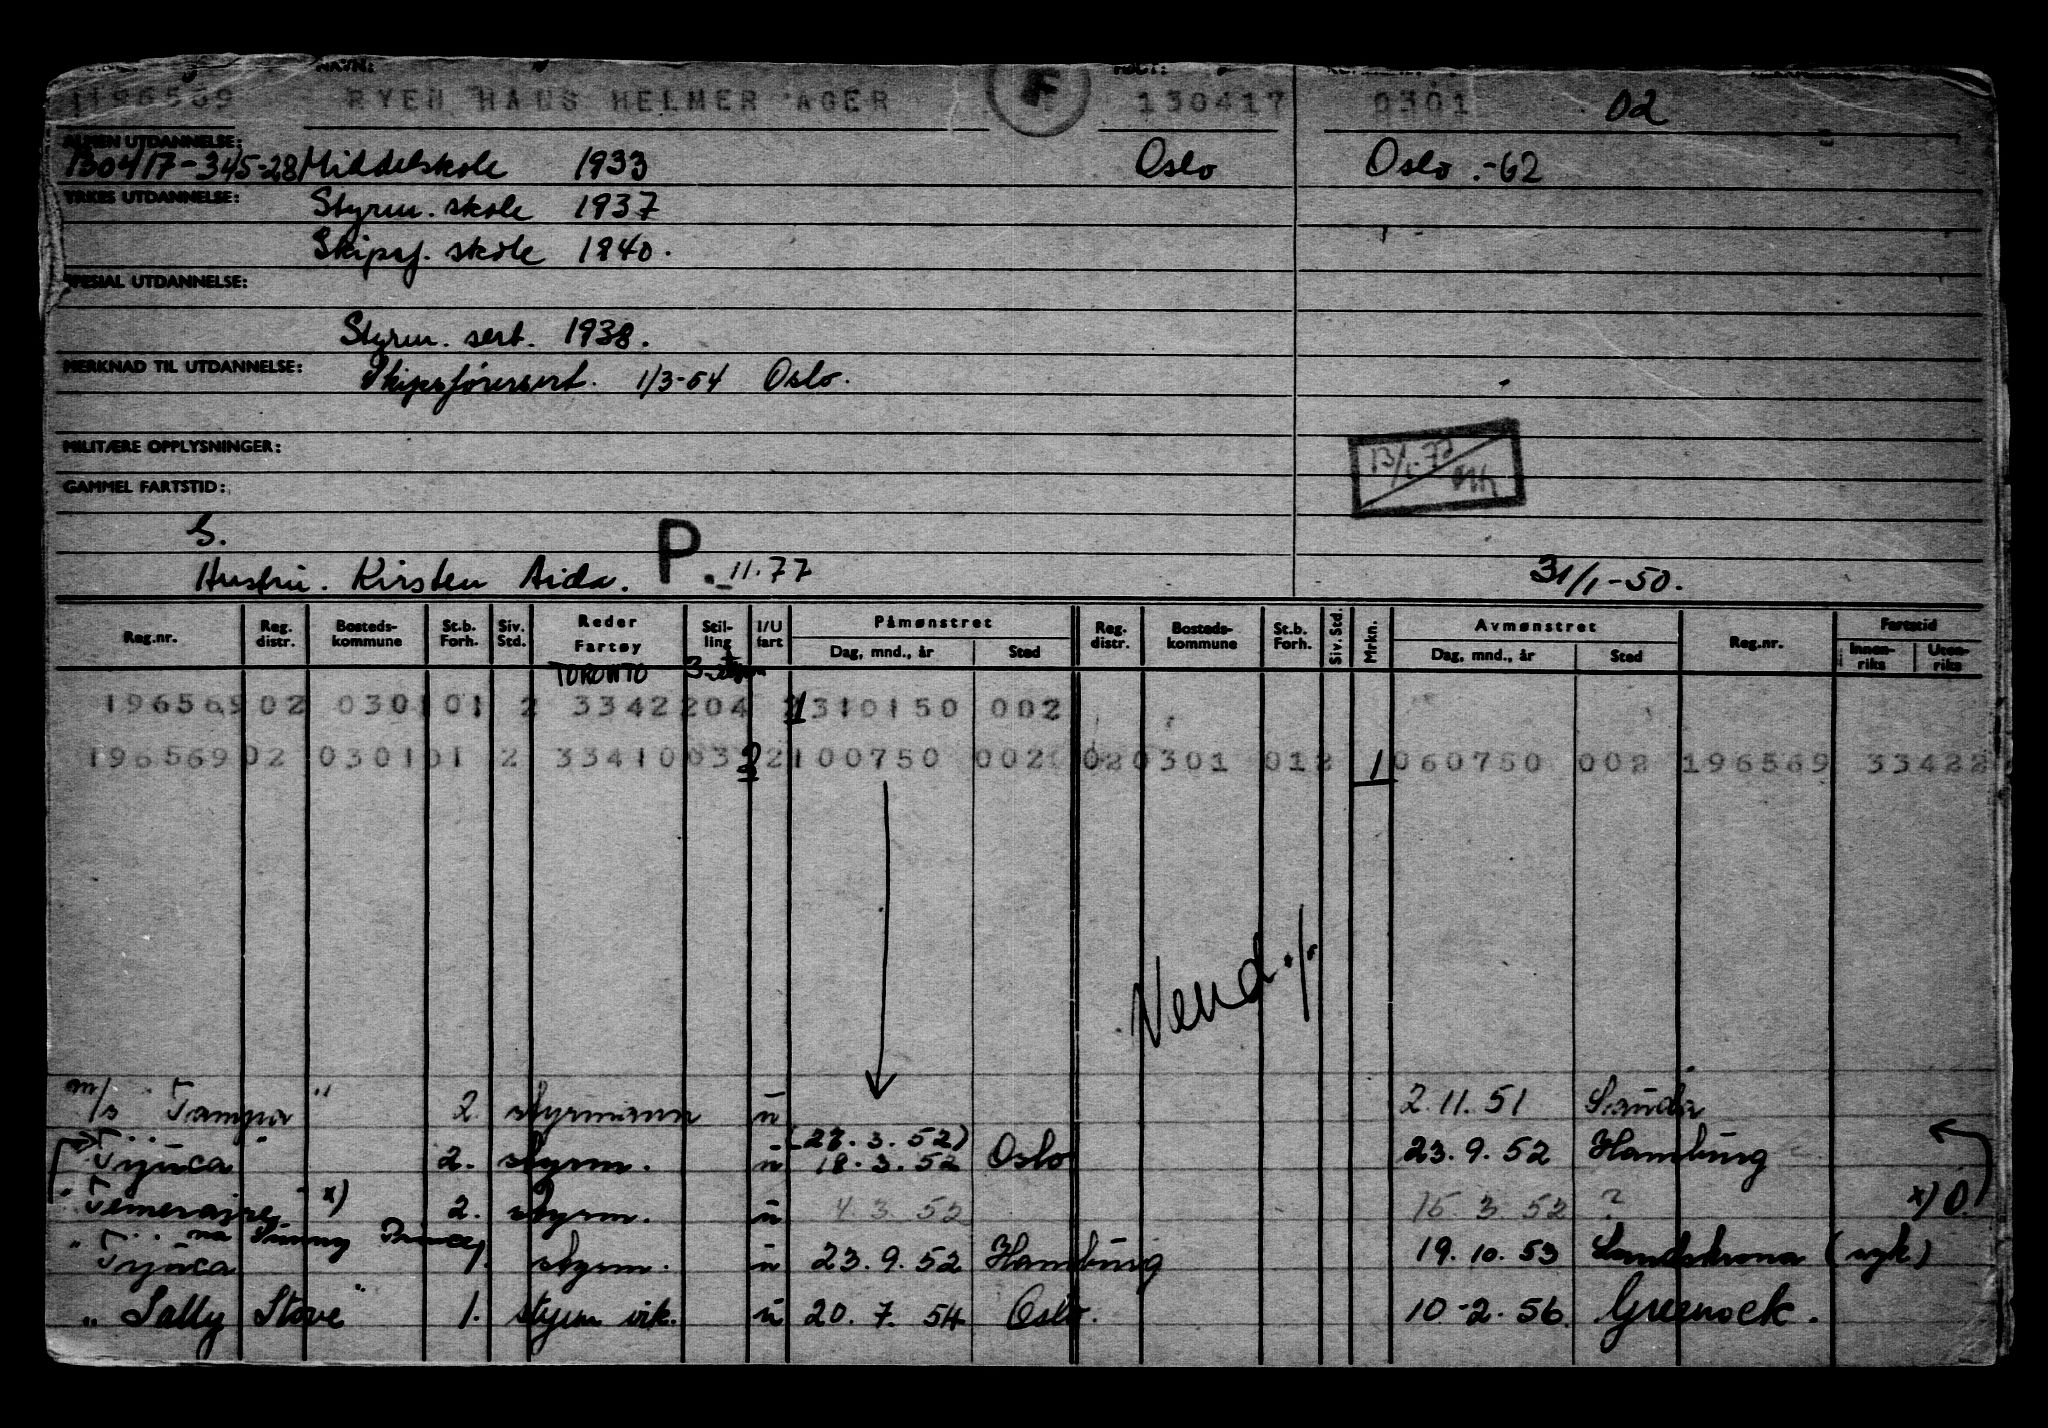 NAVN:
1196569 RYEN HANS HELMER AGER F 130417 0301 02
ALMEN UTDANNELSE:
130417-345-28 Middelskole 1933 Oslo Oslo .-62
YRKES UTDANNELSE: Styrm. skole 1937
Skipsf. skole 1940.
SPESIAL UTDANNELSE:
Styrm. sert. 1938.
MERKNAD TIL UTDANNELSE: Skipsførersert. 1/3-54 Oslo.
MILITÆRE OPPLYSNINGER:
GAMMEL FARTSTID:
S.
Hustru. Kirsten Aida. P. 11.77 31/1-50.
Reg.nr. Reg. distr. Bosteds- kommune St.b. Forh. Siv. Std. Reder Fartøy Stil- ling I/U fart Påmønstret Dag, mnd., år Sted Reg. distr. Bosteds- kommune St.b. Forh. Siv. Std. Mrkn. Avmønstret Dag, mnd., år Sted Reg.nr. Fartstid Innen- riks Uten- riks
TORONTO 3-styrm
196569 02 0301 01 2 3342 204 1 310150 002
196569 02 0301 01 2 33410 03 2 100750 002 02 0301 012 1 060750 002 196569 33422
Vend ./.
m/s "Tampa" 2. styrmann u 2.11.51 Sauda
(27.3.52)
" Tijuca " 2. styrm. u 18.3.52 Oslo 23.9.52 Hamburg
" Temeraire " x) 2. styrm. u 4 3 52 15 3 52 ? x) O
" Tijuca 1. styrm. u 23.9.52 Hamburg 19.10.53 Landskrona (syk)
" Sally Stove " 1. styrm vik. u 20.7.54 Oslo. 10-2.56. Greenock.